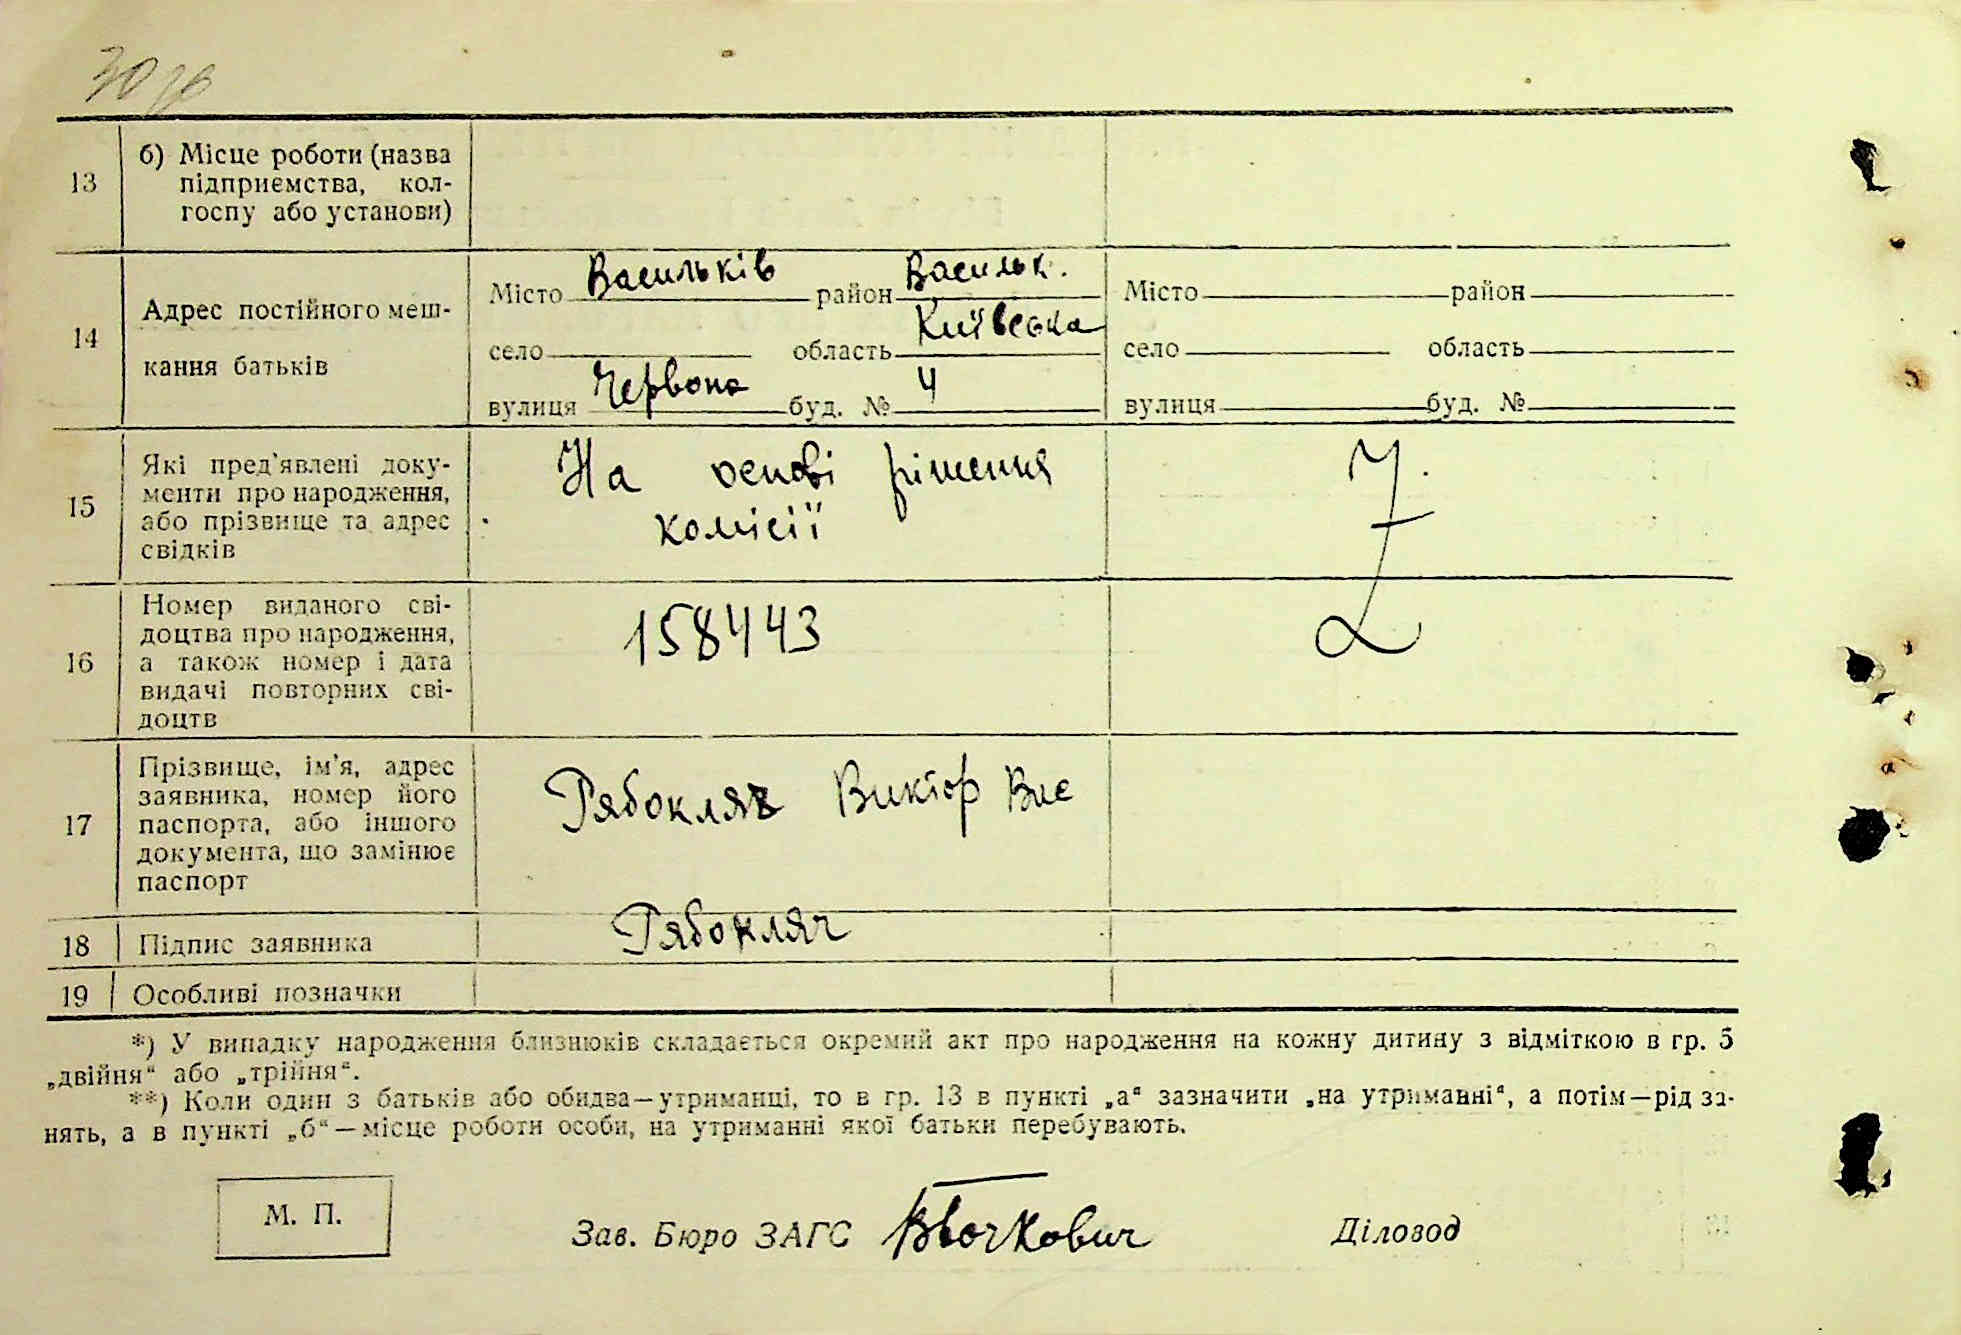 30
13 б) Місце роботи (назва
підприємства, кол-
госпу або установи)
14 Адрес постійного меш-
кання батьків
Місто Васильків район Васильк.
село область Київська
вулиця Червона буд. № 4
Місто район
село область
вулиця буд. №
15 Які пред'явлені доку-
менти про народження,
або прізвище та адрес
свідків
На основі рішення
комісії
16 Номер виданого сві-
доцтва про народження,
а також номер і дата
видачі повторних сві-
доцтв
158443
17 Прізвище, ім'я, адрес
заявника, номер його
паспорта, або іншого
документа, що замінює
паспорт
Рябокляч Виктор Вис
18 Підпис заявника Рябокляч
19 Особливі позначки
*) У випадку народження близнюків складається окремий акт про народження на кожну дитину з відміткою в гр. 5
„двійня“ або „трійня“.
**) Коли один з батьків або обидва—утриманці, то в гр. 13 в пункті „а“ зазначити „на утриманні“, а потім—рід за-
нять, а в пункті „б“—місце роботи особи, на утриманні якої батьки перебувають.
М. П.
Зав. Бюро ЗАГС Діловод